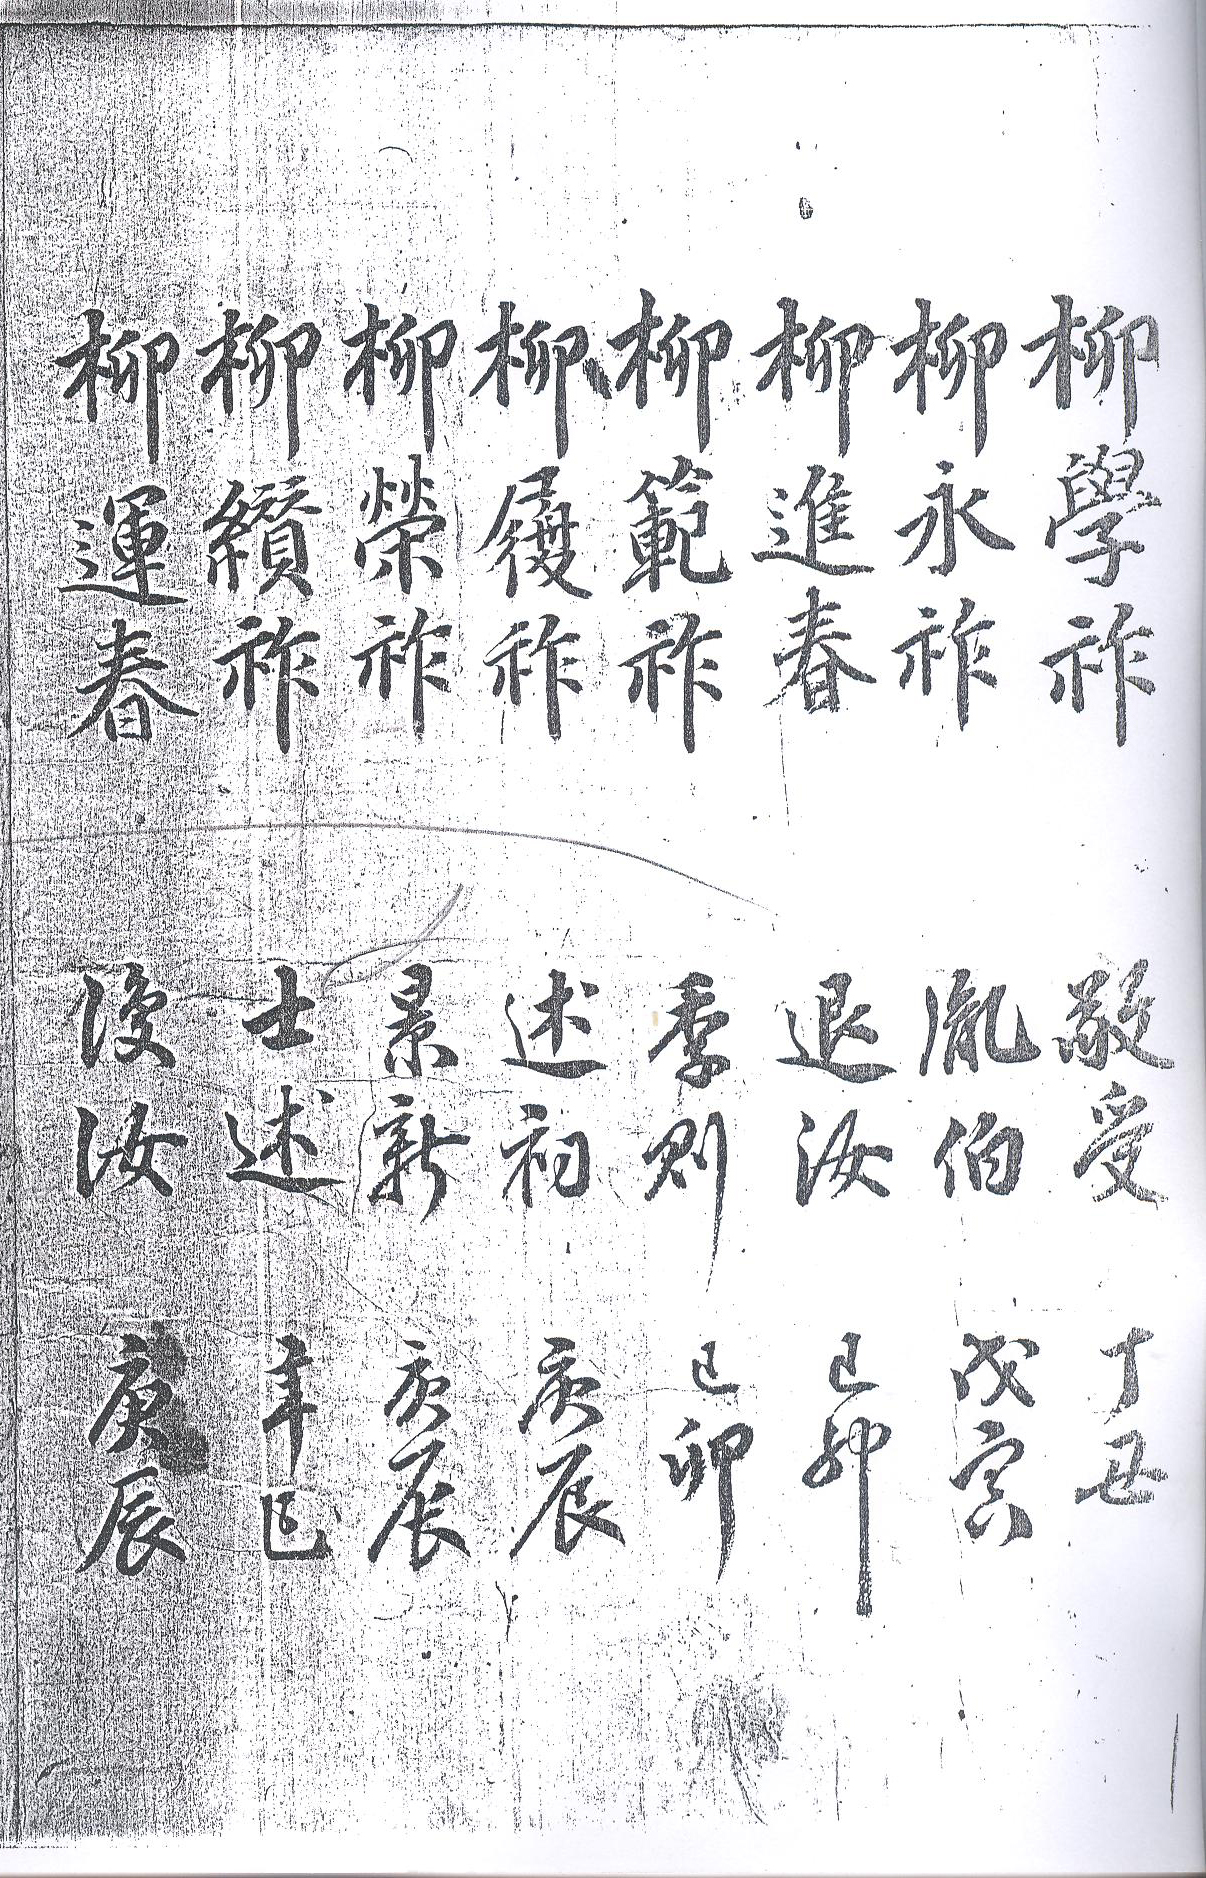 柳學祚 敬受 丁丑
柳永祚 胤伯 戊寅
柳進春 退汝 己卯
柳範祚 季則 己卯
柳履祚 述初 庚辰
柳榮祚 景新 庚辰
柳纘祚 士述 辛巳
柳運春 後汝 庚辰